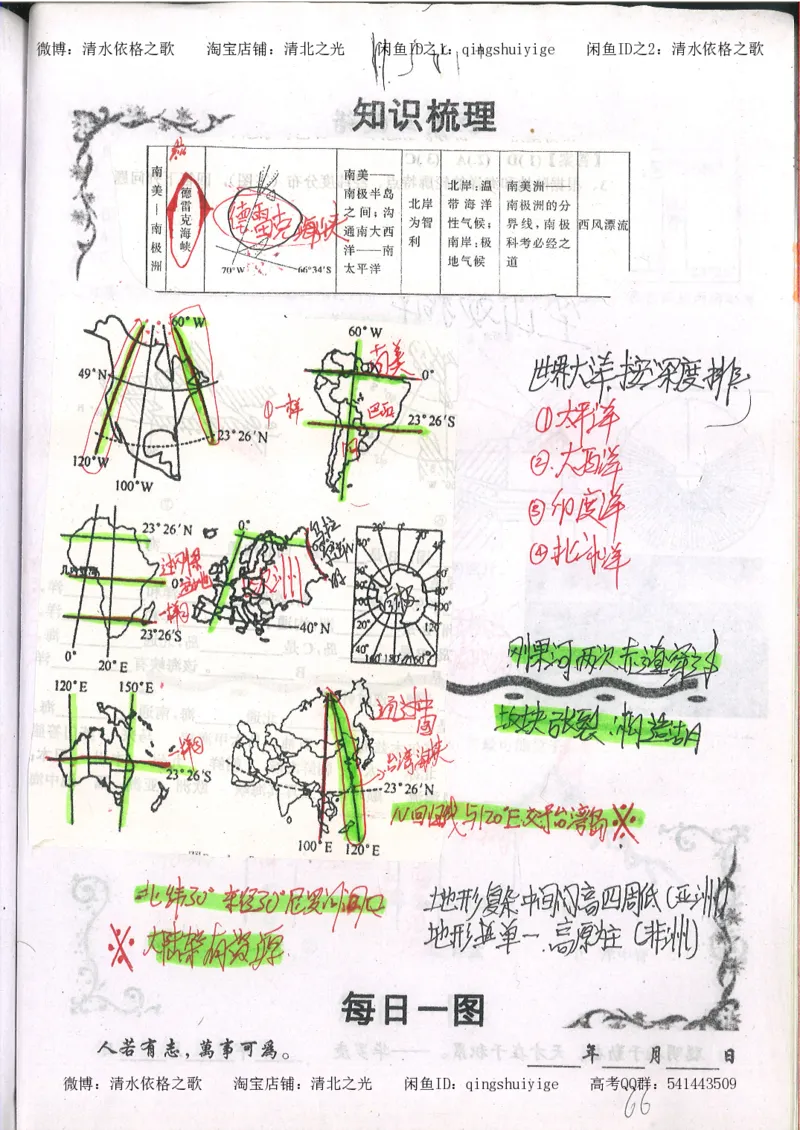 微博：清水依格之歌 淘宝店铺：清北之光 闲鱼ID之1：qingshuiyige 闲鱼ID之2：清水依格之歌
知识梳理
南美—南极洲
德雷克海峡
德雷克海峡
70°W 66°34′S
南美——
南极半岛
之间；沟
通南大西
洋——南
太平洋
北岸
为智
利
北岸：温
带海洋
性气候；
南岸：极
地气候
南美洲——
南极洲的分
界线，南极
科考必经之
道
西风漂流
60°W
49°N
23°26′N
120°W
100°W
60°W
南美
0°
①一样
巴西
23°26′S
世界大洋按深度排
①太平洋
②大西洋
③印度洋
④北冰洋
23°26′N
几内亚湾
0°
23°26′S
0°
20°E
0°
欧洲
40°N
20° 0° 20°
40° 40°
南极
100° 100°
120° 120°
160° 180° 160°
刚果河两次赤道穿过
板块张裂，构造湖
120°E 150°E
23°26′S
通过中国
台湾海峡
23°26′N
100°E 120°E
N回归线与120°E交于台湾岛※
北纬30°东经30°尼罗河河口
※大陆架有资源
地形复杂中间高四周低（亚洲）
地形单一 高原（非洲）
每日一图
人若有志，萬事可為。
年 月 日
微博：清水依格之歌 淘宝店铺：清北之光 闲鱼ID：qingshuiyige 高考QQ群：541443509
66